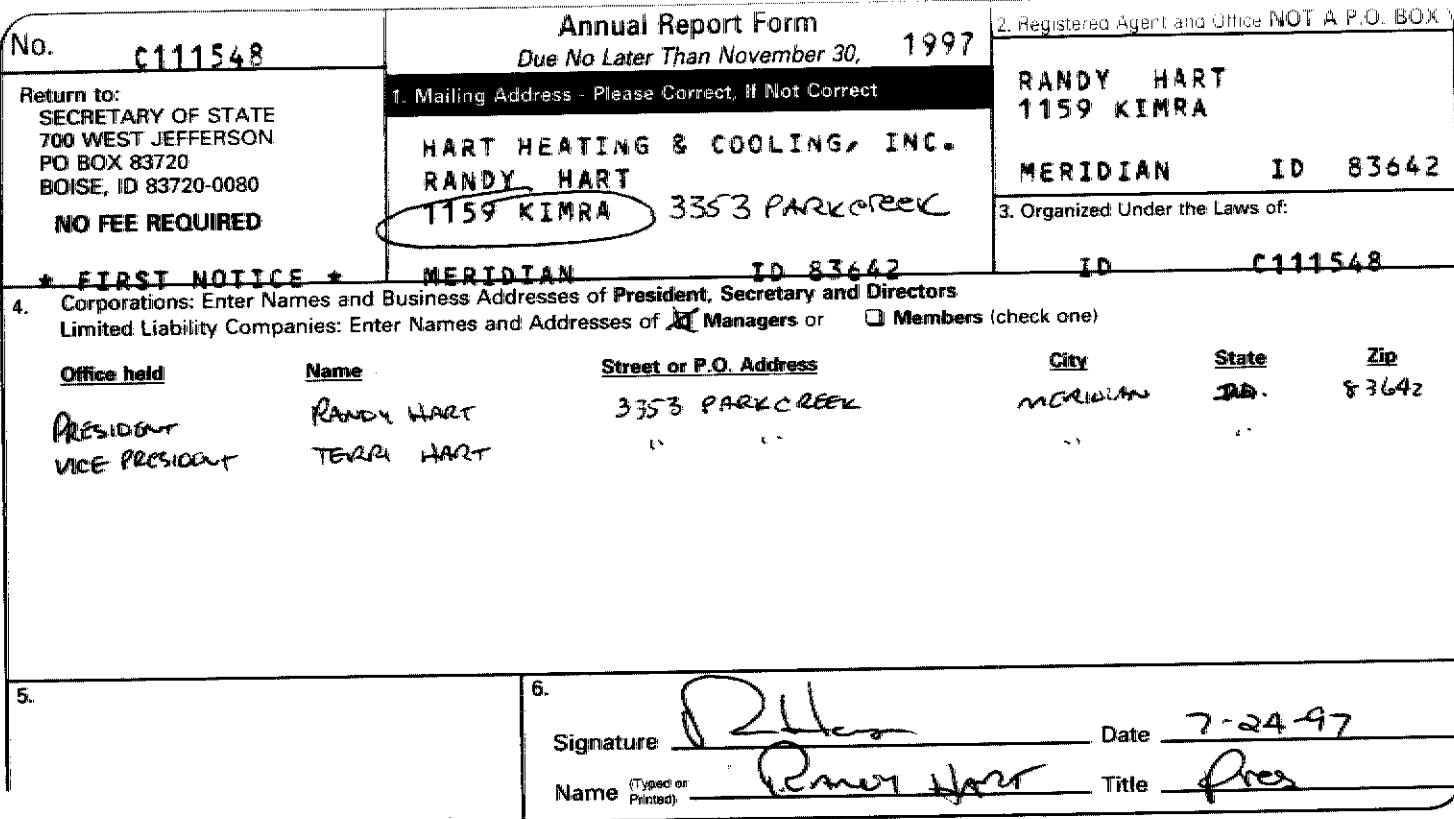 No. C111548
Return to:
SECRETARY OF STATE
700 WEST JEFFERSON
PO BOX 83720
BOISE, ID 83720-0080
NO FEE REQUIRED
* FIRST NOTICE *
Annual Report Form
Due No Later Than November 30, 1997
1. Mailing Address - Please Correct, If Not Correct
HART HEATING & COOLING, INC.
RANDY HART
1159 KIMRA 3353 PARKCREEK
MERIDIAN ID 83642
2. Registered Agent and Office NOT A P.O. BOX
RANDY HART
1159 KIMRA
MERIDIAN ID 83642
3. Organized Under the Laws of:
ID C111548
4. Corporations: Enter Names and Business Addresses of President, Secretary and Directors
Limited Liability Companies: Enter Names and Addresses of Managers or Members (check one)
Office held Name Street or P.O. Address City State Zip
PRESIDENT RANDY HART 3353 PARKCREEK MERIDIAN ID. 83642
VICE PRESIDENT TERRI HART " " " "
5.
6.
Signature R Har Date 7-24-97
Name (Typed or Printed) RANDY HART Title Pres